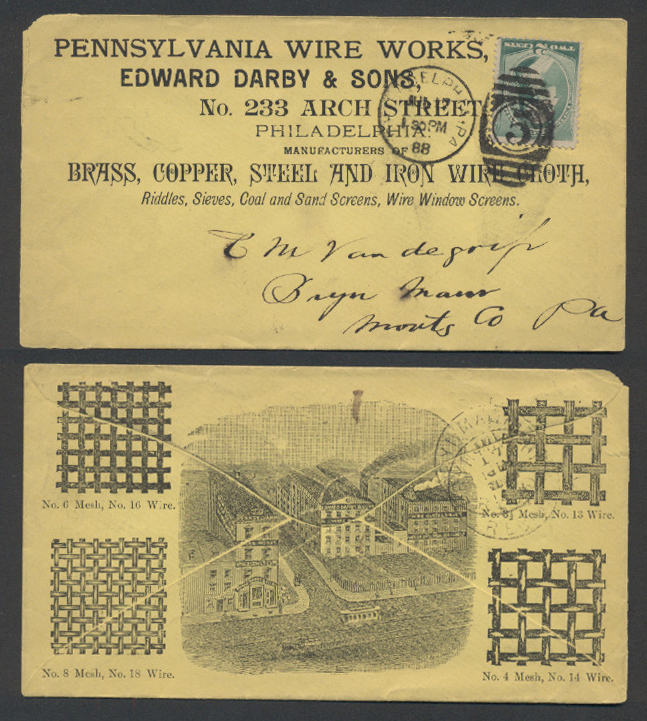 PENNSYLVANIA WIRE WORKS,
EDWARD DARBY & SONS,
No. 233 ARCH STREET
PHILADELPHIA.
MANUFACTURERS OF
BRASS, COPPER, STEEL AND IRON WIRE CLOTH,
Riddles, Sieves, Coal and Sand Screens, Wire Window Screens.
TWO CENTS
PHILADELPHIA PA
17
1 30 PM
88
C M Vandegrift
Bryn Mawr
Montg Co Pa
No. 6 Mesh, No. 16 Wire.
No. 3½ Mesh, No. 13 Wire.
No. 8 Mesh, No. 18 Wire.
No. 4 Mesh, No. 14 Wire.